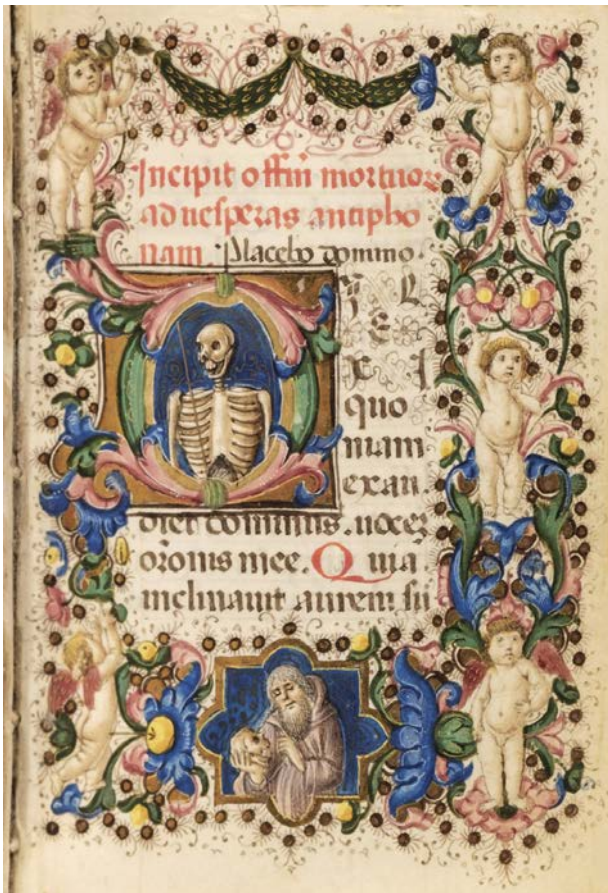 Incipit offiñ mortuor
ad uesperas antipho
nam. Placebo domino.
D I L
E
X I
quo
niam
exau
diet dominus. uocez
orōnis mee. Quia
inclinauit aurem su